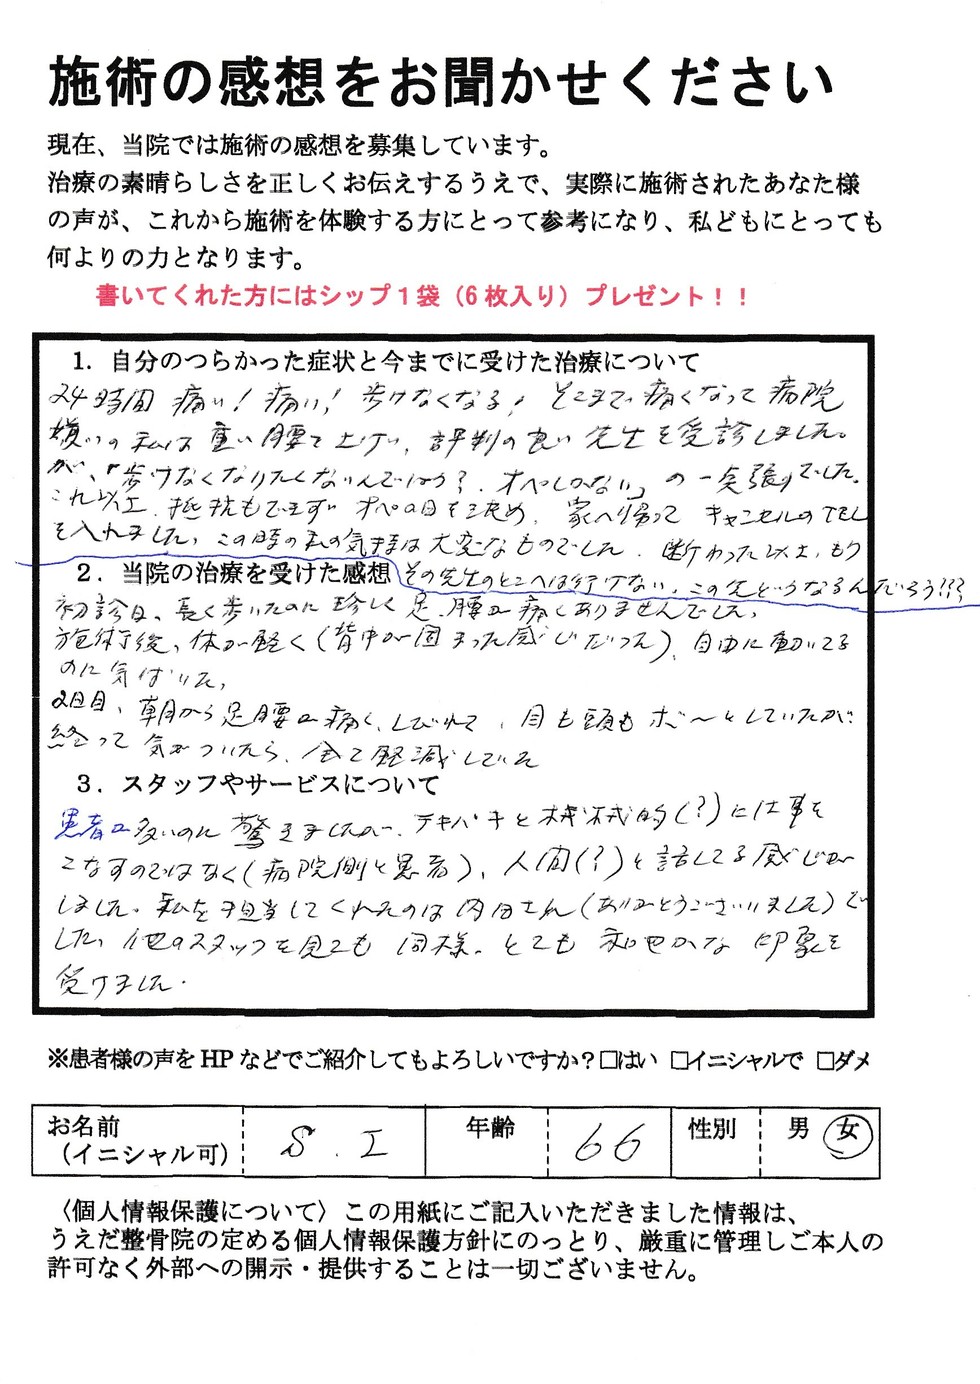 施術の感想をお聞かせください
現在、当院では施術の感想を募集しています。
治療の素晴らしさを正しくお伝えするうえで、実際に施術されたあなた様
の声が、これから施術を体験する方にとって参考になり、私どもにとっても
何よりの力となります。
書いてくれた方にはシップ１袋（６枚入り）プレゼント！！
１．自分のつらかった症状と今までに受けた治療について
24時間 痛い！痛い！歩けなくなる！そこまで痛くなって病院
嫌いの私は重い腰を上げ、評判の良い先生を受診しました。
が、「歩けなくなりたくないんでしょう？オペしかない」の一点張りでした。
これ以上、抵抗もできず オペの日を決め、家へ帰って キャンセルのTEL
を入れました。この時の私の気持は大変なものでした。断わった以上、もう
２．当院の治療を受けた感想 その先生のところへは行けない。この先どうなるんだろう!???
初診日、長く歩いたのに珍しく足、腰が痛くありませんでした。
施術後、体が軽く（背中が固まった感じだった）、自由に動いてる
のに気付いた。
2日目、朝から足腰が痛く、しびれて、目も頭もボ〜としていたが、
経って 気がついたら、全て軽減していた
３．スタッフやサービスについて
患者が多いのに驚きましたが、テキパキと機械的（？）に仕事を
こなすのではなく（病院側と患者）、人間（？）と話してる感じが
しました。私を担当してくれたのは内田さん（ありがとうございました）で
した。他のスタッフを見ても 同様。とても 和やかな 印象を
受けました。
※患者様の声をHPなどでご紹介してもよろしいですか？□はい □イニシャルで □ダメ
お名前 S.I 年齢 66 性別 男 女
（イニシャル可）
〈個人情報保護について〉この用紙にご記入いただきました情報は、
うえだ整骨院の定める個人情報保護方針にのっとり、厳重に管理しご本人の
許可なく外部への開示・提供することは一切ございません。